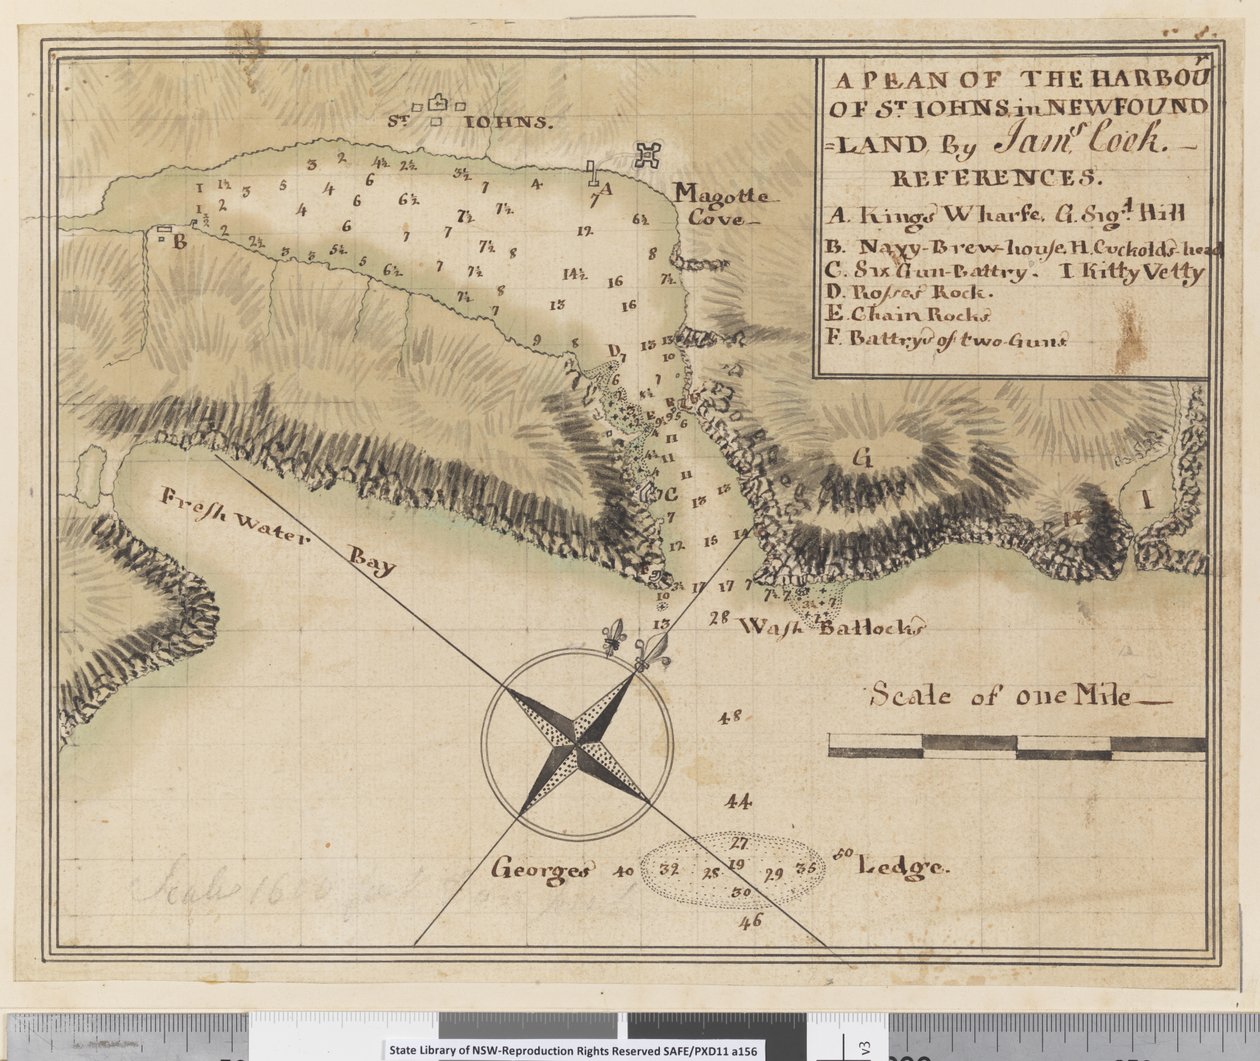 A PLAN OF THE HARBOUʳ
OF Sᵀ IOHNS, in NEWFOUND
=LAND, By Jamˢ Cook. —
REFERENCES.
A. Kings Wharfe. G. Sigᵈ Hill
B. Navy-Brew-house. H. Cuckolds-head
C. Six Gun-Battry. I Kitty Vetty
D. Rosses Rock.
E. Chain Rocks
F. Battrys of two-Guns
Sᵀ IOHNS.
Magotte
Cove —
3 2 4½ 2½ 3½
1 1½ 3 5 4 6 7 4 7 A
1 2 4 6 6½ 7½ 7½ 6½
½ 2 6 7 7 12
B 2½ 3 3 5½ 5 6½ 7 7½ 7½ 8 8
14½ 16 7½
7½ 8 7 13 16
9 8 D 7 13 13
10
6 7
11
11
C 11
7 13 13
12 15 14
G
H
I
Fresh Water Bay
10 17 17 7 7½ 7
13 28 Wash Ballocks
Scale of one Mile —
48
44
27
Georges 40 32 28 19 29 35 50 Ledge.
30
46
State Library of NSW-Reproduction Rights Reserved SAFE/PXD11 a156
v3